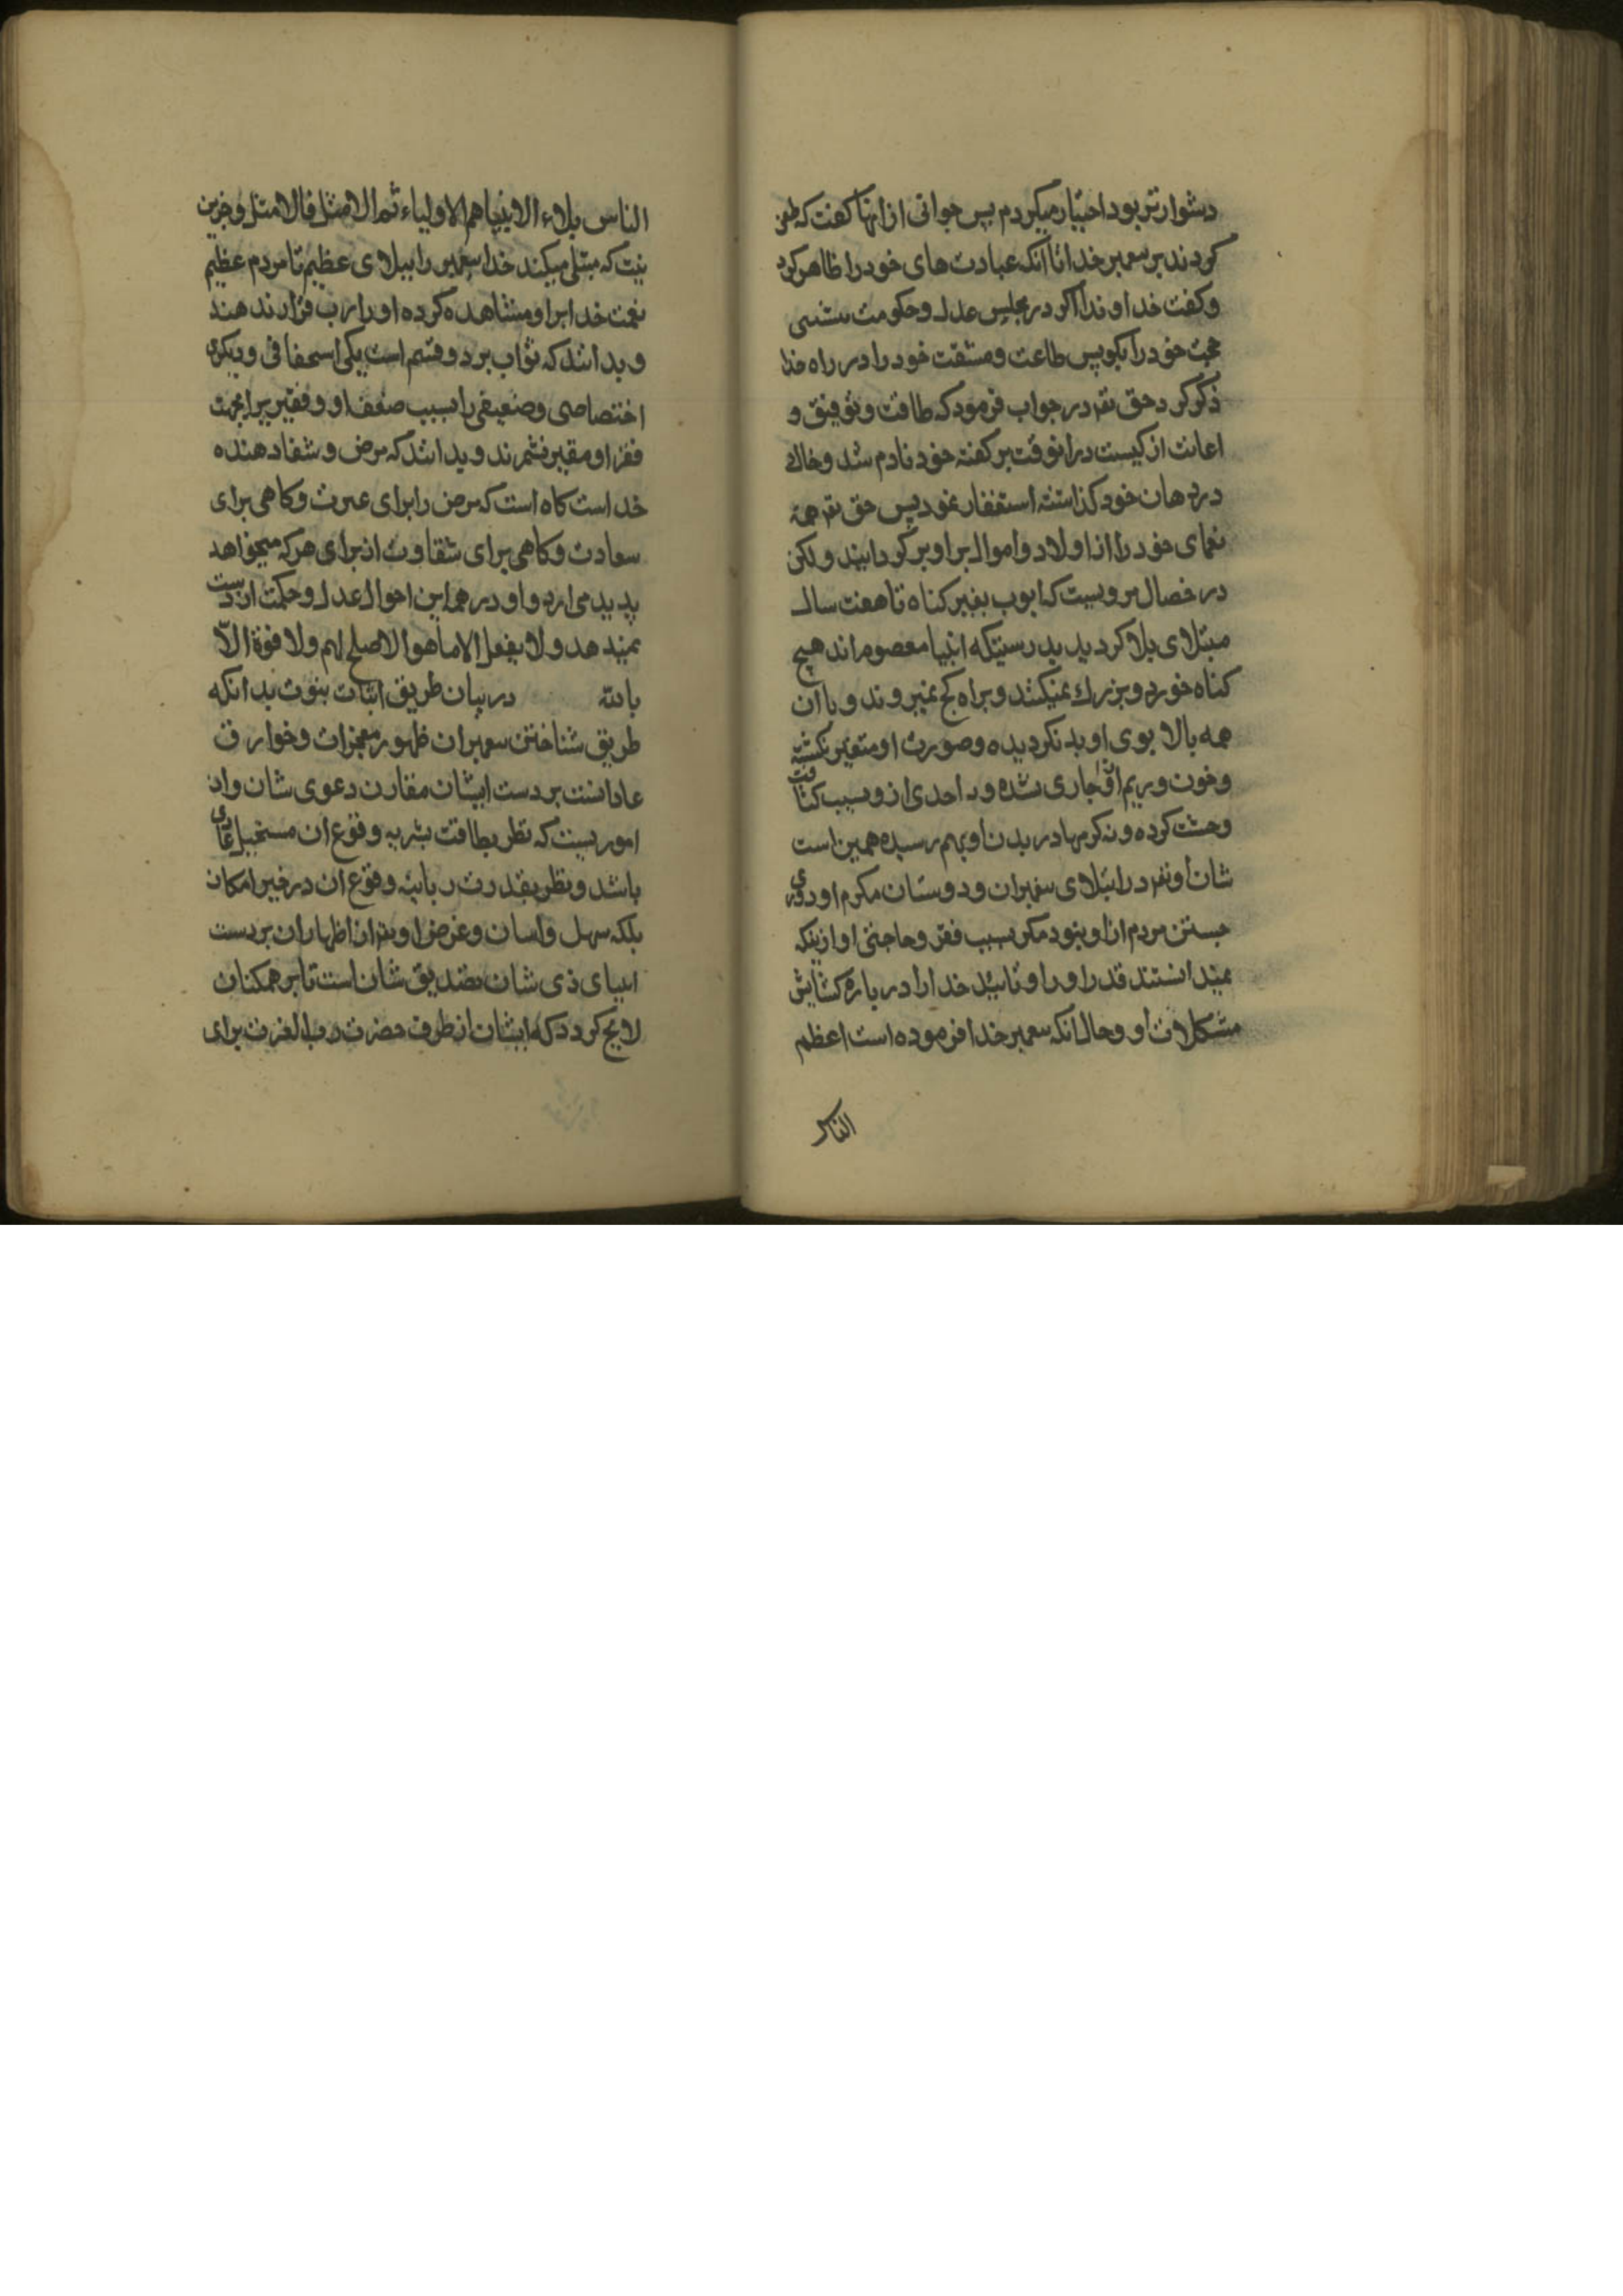 دشوارتر بود اختیار میکردم پس جوانی از انها کفت که طعن
کردند بر پیغمبر خدا تا آنکه عبادت های خود را ظاهر کرد
و کفت خداوندا اکر در مجلس عدل و حکومت بنشینی
حجت خود را بکویم پس طاعت و مشقت خود را در راه خدا
ذکر کرد حق تعر در جواب فرمود که طاقت و توفیق و
اعانت از کیست در انوقت بر کفته خود نادم شد و خاک
در دهان خود کذاشته استغفار نمود پس حق تعر همه
نعمای خود را از اولاد و اموال بر او بر کردانید و لکن
در خصال مرویست که ایوب بغیر کناه تا هفت سال
مبتلای بلا کردید بدرستیکه انبیا معصوم اند هیچ
کناه خورد و بزرک نمیکنند و براه کج نمیروند و با آن
همه بالا بوی او بد نکردیده و صورت او متغیر نکشته
و خون و ریم از او جاری نشده و احدی از و بسبب کثافت
وحشت کرده و نه کرمها در بدن او بهم رسیده همین است
شان او تعر در ابتلای پیغمبران و دوستان مکرم او و دوری
جستن مردم از او نبود مکر بسبب فقر و حاجتی او ازینکه
نمیدانستند قدر او را و تایید خدا را در باره کشایش
مشکلات او و حال انکه پیغمبر خدا فرموده است اعظم
الناس
الناس بلاء الانبیا هم الاولیاء ثم الامثل فالامثل و جز این
نیت که مبتلی میکند خدا پیغمبر را ببلای عظیم تا مردم عظیم
نعمت خدا بر او مشاهده کرده او را رب قرار ندهند
و بدانند که ثواب بر دو قسم است یکی استحقاقی و دیکری
اختصاصی و ضعیفی را بسبب ضعف او و فقیر را بجهت
فقر او مقیر نشمرند و بدانند که مرض و شفا دهنده
خداست کاه است که مرض را برای عبرت و کاهی برای
سعادت و کاهی برای شقاوت از برای هر که میخواهد
پدید می ارد و او در همه این احوال عدل و حکمت از دست
نمیدهد و لا یفعل الا ما هو الاصلح لهم و لا قوة الا
بالله در بیان طریق اثبات نبوت بدانکه
طریق شناختن پیغمبران ظهور معجزات و خوارق
عاداتست بر دست ایشان مقارن دعوی شان و ان
امور یست که نظر بطاقت بشریه وقوع ان مستحیل عادی
باشد و نظر بقدرت ربانیه وقوع ان در خیر امکان
بلکه سهل و اسان و غرض او تعر از اظهار ان بر دست
انبیای ذی شان تصدیق شان است تا بر همکنان
لایح کردد که ایشان از طرف حضرت رب العزت برای